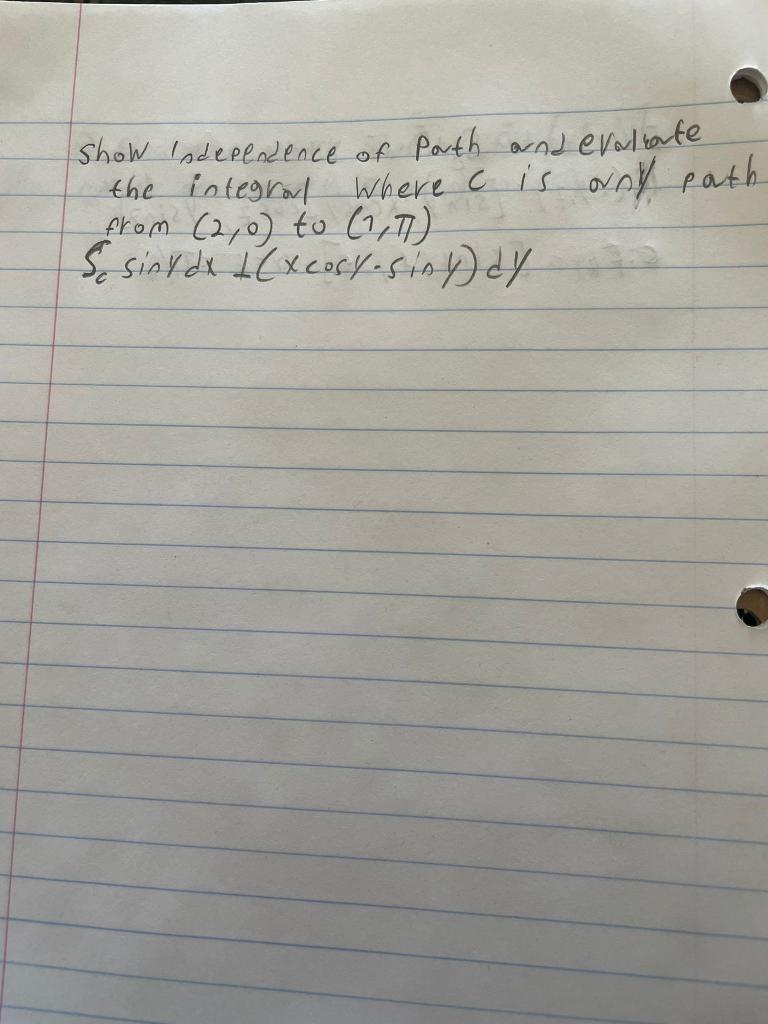 Show Independence of Path and evaluate
the integral where C is any path
from (2,0) to (1,π)
∫c sinY dx + (x cosY - sin y) dY